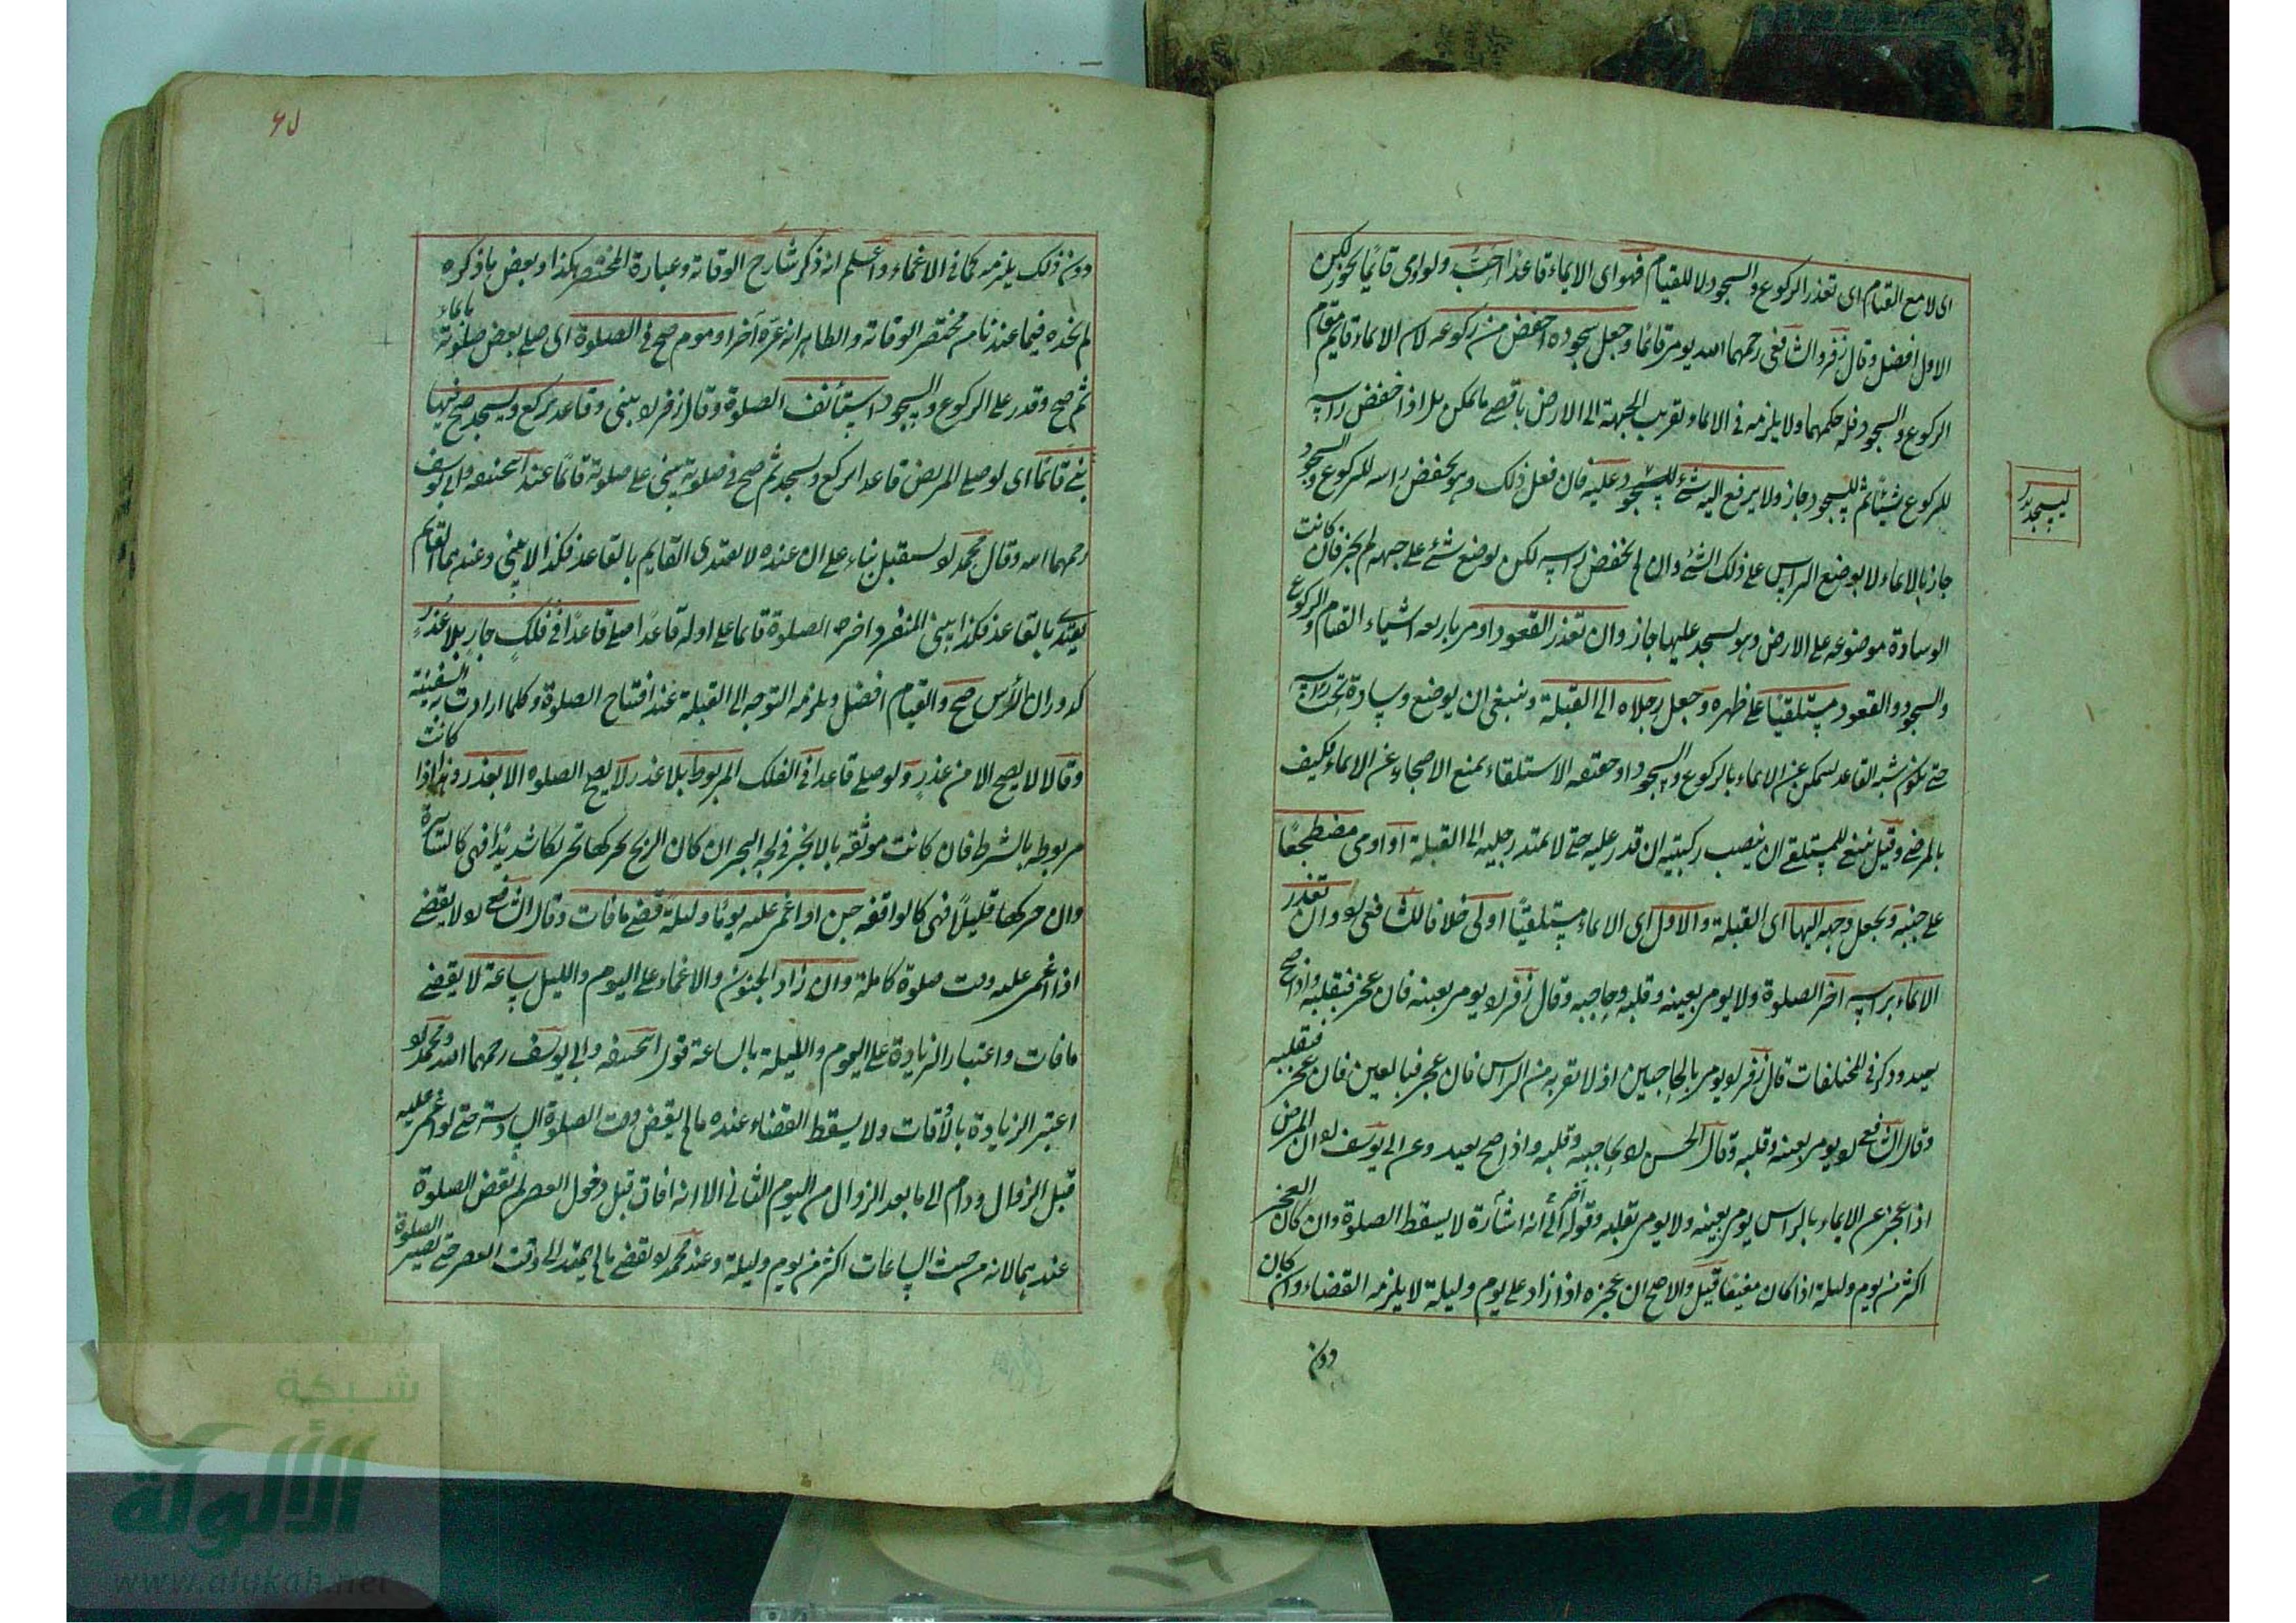 اى لا مع القيام اى تعذر الركوع والسجود لا للقيام فهو اى الايماء قاعدا احب ولو اومى قائما يجوز لكن
الاول افضل وقال زفر والشافعى رحمهما الله يومر قائما وجعل سجوده اخفض من ركوعه لان الايماء قايم مقام
الركوع والسجود فله حكمهما ولا يلزمه فى الايماء تقريب الجبهة الى الارض باقصے ما يمكن بل اذا خفض راسه
للركوع شيئا ثم للسجود جاز ولا يرفع اليه شئ للسجود عليه فان فعل ذلك وهو يخفض راسه للركوع والسجود
ليسجد
جاز بالايماء لا بوضع الراس على ذلك الشئ وان لم يخفض راسه لكن يوضع شئ على جبهته لم يجز فان كانت
الوسادة موضوعه على الارض وهو يسجد عليها جاز وان تعذر القعود اومر باربعه اشياء القيام والركوع
والسجود والقعود مستلقيا على ظهره وجعل رجلاه الى القبلة وينبغى ان يوضع وسادة تحت راسه
حتے يكون شبه القاعد ليتمكن عن الايماء بالركوع والسجود اذ حقيقه الاستلقاء يمنع الاصحاء عن الايماء فكيف
بالمرضے وقيل ينبغے للمستلقے ان ينصب ركبتيه ان قدر عليه حتے لا يمتد رجليه الى القبلة او اومى مضطجعا
على جنبه ويجعل وجهه اليها اى القبلة والاول اى الايماء مستلقيا اولى خلافا للشافعى وان تعذر
الايماء براسه اخر الصلوة ولا يومر بعينه وقلبه وحاجبه وقال زفر يومر بعينه فان عجز فبقلبه واذا صح
يعيد وذكر فى المختلفات قال زفر يومر بالحاجبين اذ لا تقربه من الراس فان عجز فبالعين فان عجز فبقلبه
وقال الشافعے يومر بعينه وقلبه وقال الحسن بحاجبيه وقلبه واذا صح يعيد وعن ابى يوسف ان المريض
اذا عجز عن الايماء بالراس يومر بعينه ولا يومر بقلبه وقوله اخر الى انه اشارة لا يسقط الصلوة وان كان العجز
اكثر من يوم وليلة اذا كان مفيقا قيل والاصح ان عجزه اذا زاد على يوم وليلة لا يلزمه القضاء وان كان
دون
دون ذلك يلزمه كما فى الاغماء واعلم انه ذكر شارح الوقاية وعبارة المختصر هكذا وبعض ما ذكره
لم نجده فيما عندنا من مختصر الوقاية والظاهر انه غيره آخرا وموم صح فى الصلوة اى صلے بعض صلوته بايماء
ثم صح وقدر على الركوع والسجود استأنف الصلوة وقال زفر يبنى وقاعد يركع ويسجد صح فيها
بنے قائما اى لو صلے المريض قاعدا يركع ويسجد ثم صح فى صلوته يبنى على صلوته قائما عند ابى حنيفه وابى يوسف
رحمهما الله وقال محمد يستقبل بناء على ان عنده لا يقتدى القايم بالقاعد فكذا لا يبنى وعندهما القايم
يقتدى بالقاعد فكذا يبنى المنفرد اخر الصلوة قائما على اوله قاعدا صلے قاعدا فى فلك جار بلا عذر
كدوران الرأس صح والقيام افضل ويلزمه التوجه الى القبلة عند افتتاح الصلوة وكلما دارت به السفينة
وقالا لا يصح الا من عذر ولو صلے قاعدا فى الفلك المربوط بلا عذر لا يصح الصلوة الا بعذر وهذا اذا كانت
مربوطه بالشرط فان كانت موثقه بالانجر فى لجه البحر ان كان الريح يحركها تحركا شديدا فهى كالسائرة
وان حركها قليلا فهى كالواقفه جن او اغمى عليه يوما وليلة قضے ما فات وقال الشافعے لا يقضے
اذا اغمى عليه وقت صلوة كاملة وان زاد الجنون والاغماء على اليوم والليل ساعة لا يقضے
ما فات واعتبار الزيادة على اليوم والليلة بالساعة قول ابى حنيفه وابى يوسف رحمهما الله ومحمد
اعتبر الزيادة بالاوقات ولا يسقط القضاء عنده ما لم يقض وقت الصلوة السادسة حتے لو اغمى عليه
قبل الزوال ودام الى ما بعد الزوال من اليوم الثانى الا انه افاق قبل دخول العصر لم يقض الصلوة
عندهما لانه من حيث الساعات اكثر من يوم وليلة وعند محمد يقضے ما لم يمتد الى وقت العصر حتے تصير الصلوة
شبكة
الألوكة
www.alukah.net